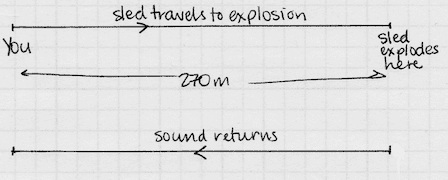 sled travels to explosion
You
sled
explodes
here
270m
sound returns